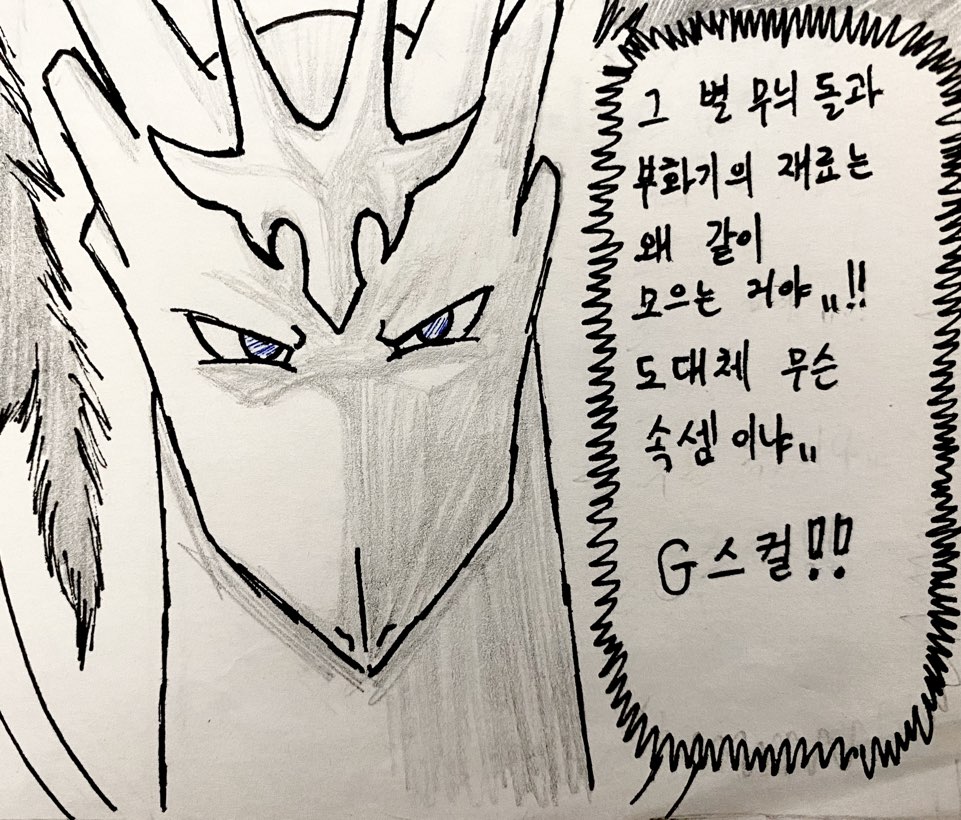 그 별 무늬 돌과
부화기의 재료는
왜 같이
모으는 거야,,!!
도대체 무슨
속셈이냐,,
G스컬!!